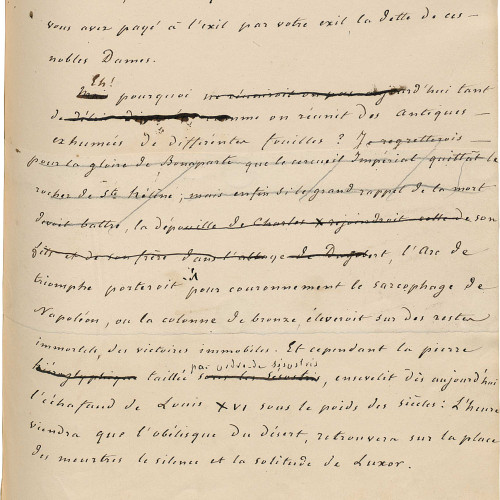 vous avez payé à l'exil par votre exil, la dette de ces
nobles Dames.
Eh! pourquoi ne réuniroit on pas aujourd'hui tant
de débris dispersés, comme on réunit des Antiques
exhumés de différentes fouilles? Je regretterois
pour la gloire de Bonaparte que le cercueil Impérial quittât le
rocher de Ste hélène; mais enfin si le grand rappel de la mort
devoit battre, la dépouille de Charles X rejoindroit celle de son
fils et de son frère dans l'abbaye de Dagobert, l'Arc de
triomphe porteroit-il pour couronnement le sarcophage de
Napoléon, ou la colonne de bronze, éleveroit sur des restes
immortels, des victoires immobiles. Et cependant la pierre
hiéroglyphique taillée par ordre de Sésostris sous les Sésostris, ensevelit dès aujourd'hui
l'échafaud de Louis XVI sous le poids des siècles: L'heure
viendra que l'obélisque du désert, retrouvera sur la place
des meurtres le silence et la solitude de Luxor.